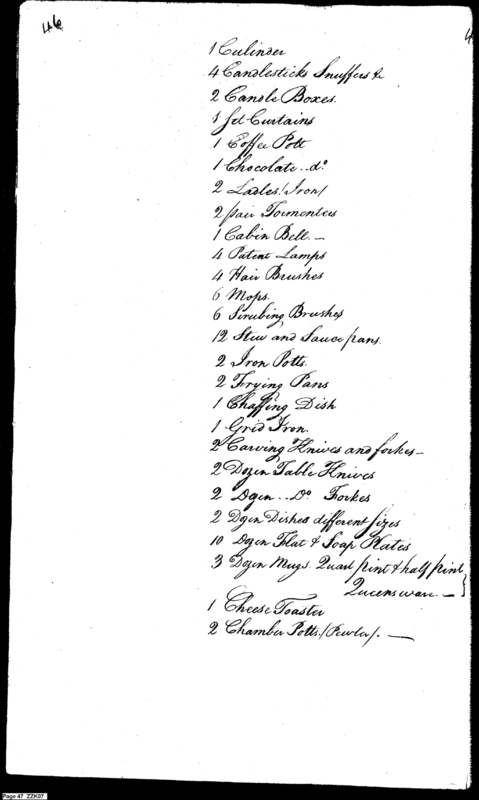 46
4
1 Culinder
4 Candlesticks Snuffers &c
2 Candle Boxes.
1 Set Curtains
1 Coffee Pott
1 Chocolate .. do.
2 Ladles /Iron/
2 pair Tormenters
1 Cabin Bell. —
4 Patent Lamps
4 Hair Brushes
6 Mops.
6 Scrubing Brushes
12 Stew and Sauce pans.
2 Iron Potts.
2 Frying Pans
1 Chaffing Dish
1 Grid Iron.
2 Carving Knives and forkes —
2 Dozen Table Knives
2 Dozen .. Do Forkes
2 Dozen Dishes different sizes
10 Dozen Flat & Soap Plates
3 Dozen Mugs. Quart pint & half pint
Queensware. — }
1 Cheese Toaster
2 Chamber Potts. /Pewter/. —
Page 47 ZZK07